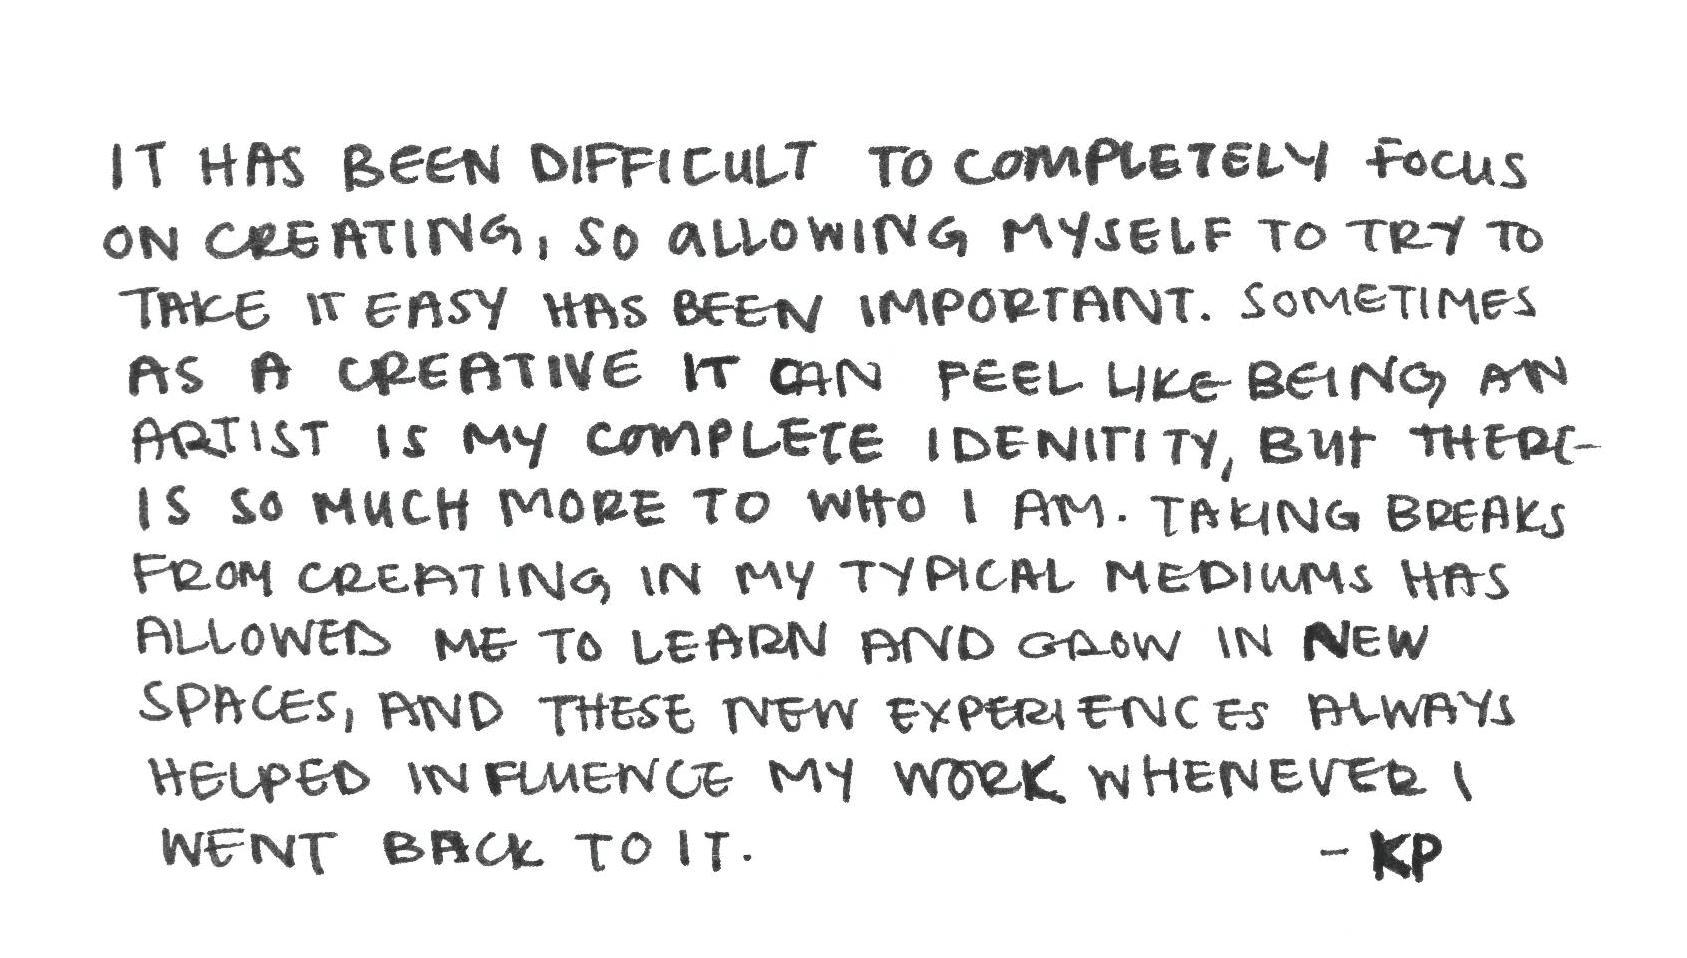 IT HAS BEEN DIFFICULT TO COMPLETELY FOCUS
ON CREATING, SO ALLOWING MYSELF TO TRY TO
TAKE IT EASY HAS BEEN IMPORTANT. SOMETIMES
AS A CREATIVE IT CAN FEEL LIKE BEING AN
ARTIST IS MY COMPLETE IDENITITY, BUT THERE
IS SO MUCH MORE TO WHO I AM. TAKING BREAKS
FROM CREATING IN MY TYPICAL MEDIUMS HAS
ALLOWED ME TO LEARN AND GROW IN NEW
SPACES, AND THESE NEW EXPERIENCES ALWAYS
HELPED INFLUENCE MY WORK WHENEVER I
WENT BACK TO IT. - KP